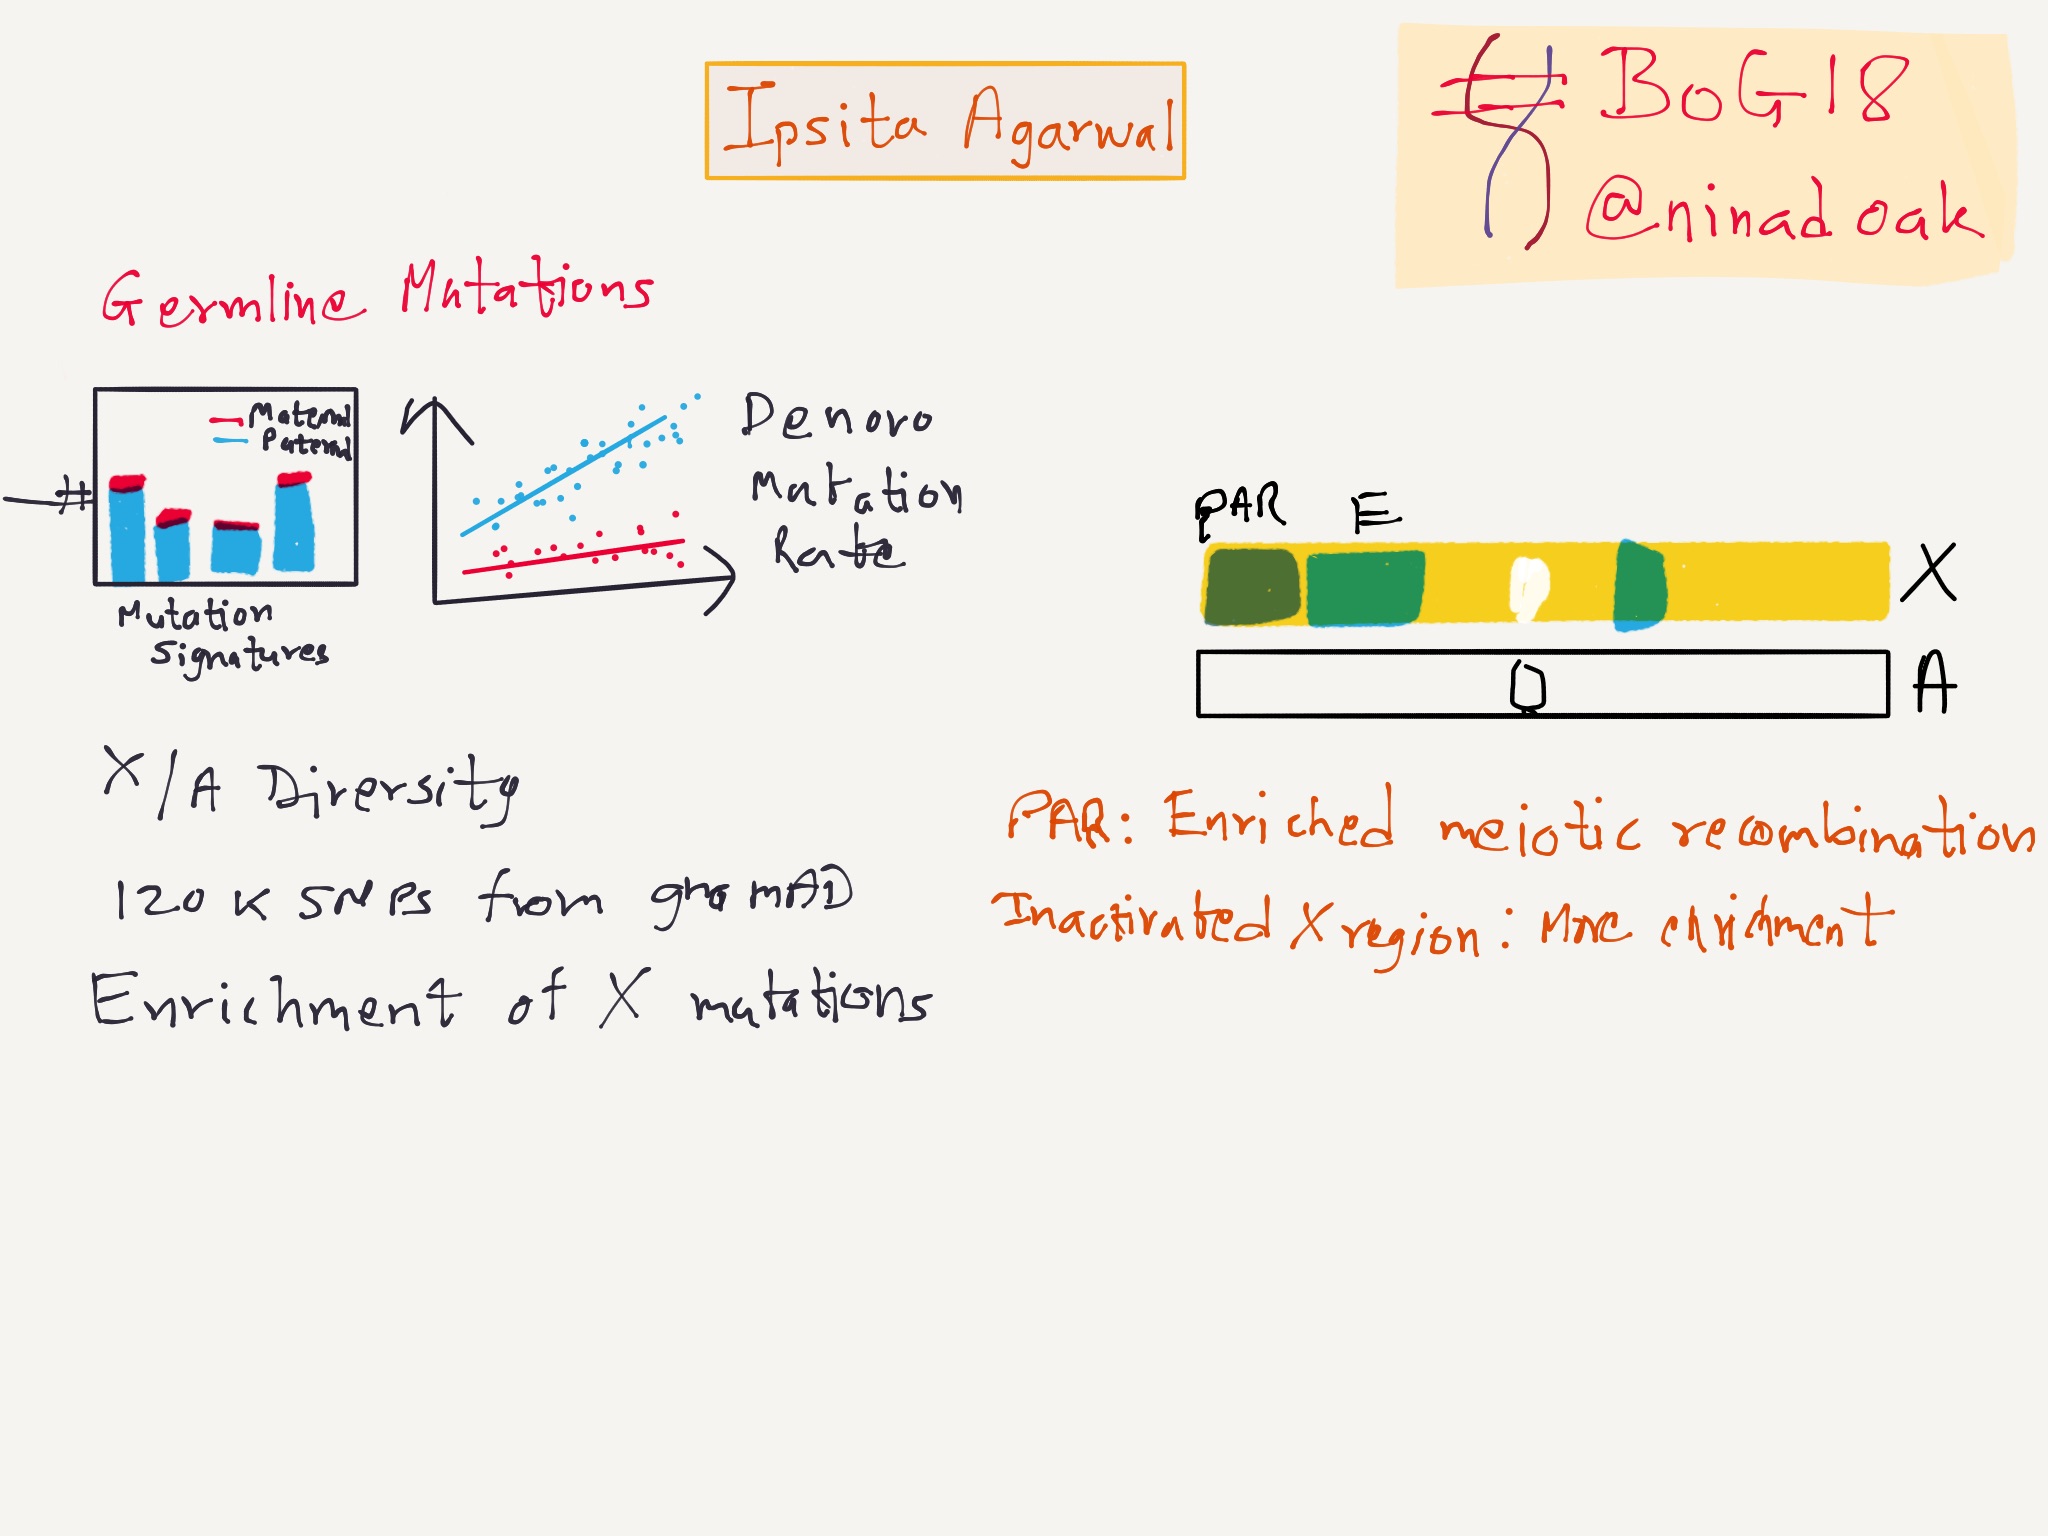 Ipsita Agarwal
# BoG18
@ninadoak
Germline Mutations
Maternal
Paternal
#
Mutation
Signatures
Denovo
Mutation
Rate
PAR E
X
A
X/A Diversity
120K SNPs from gnomAD
Enrichment of X mutations
PAR: Enriched meiotic recombination
Inactivated X region: More enrichment